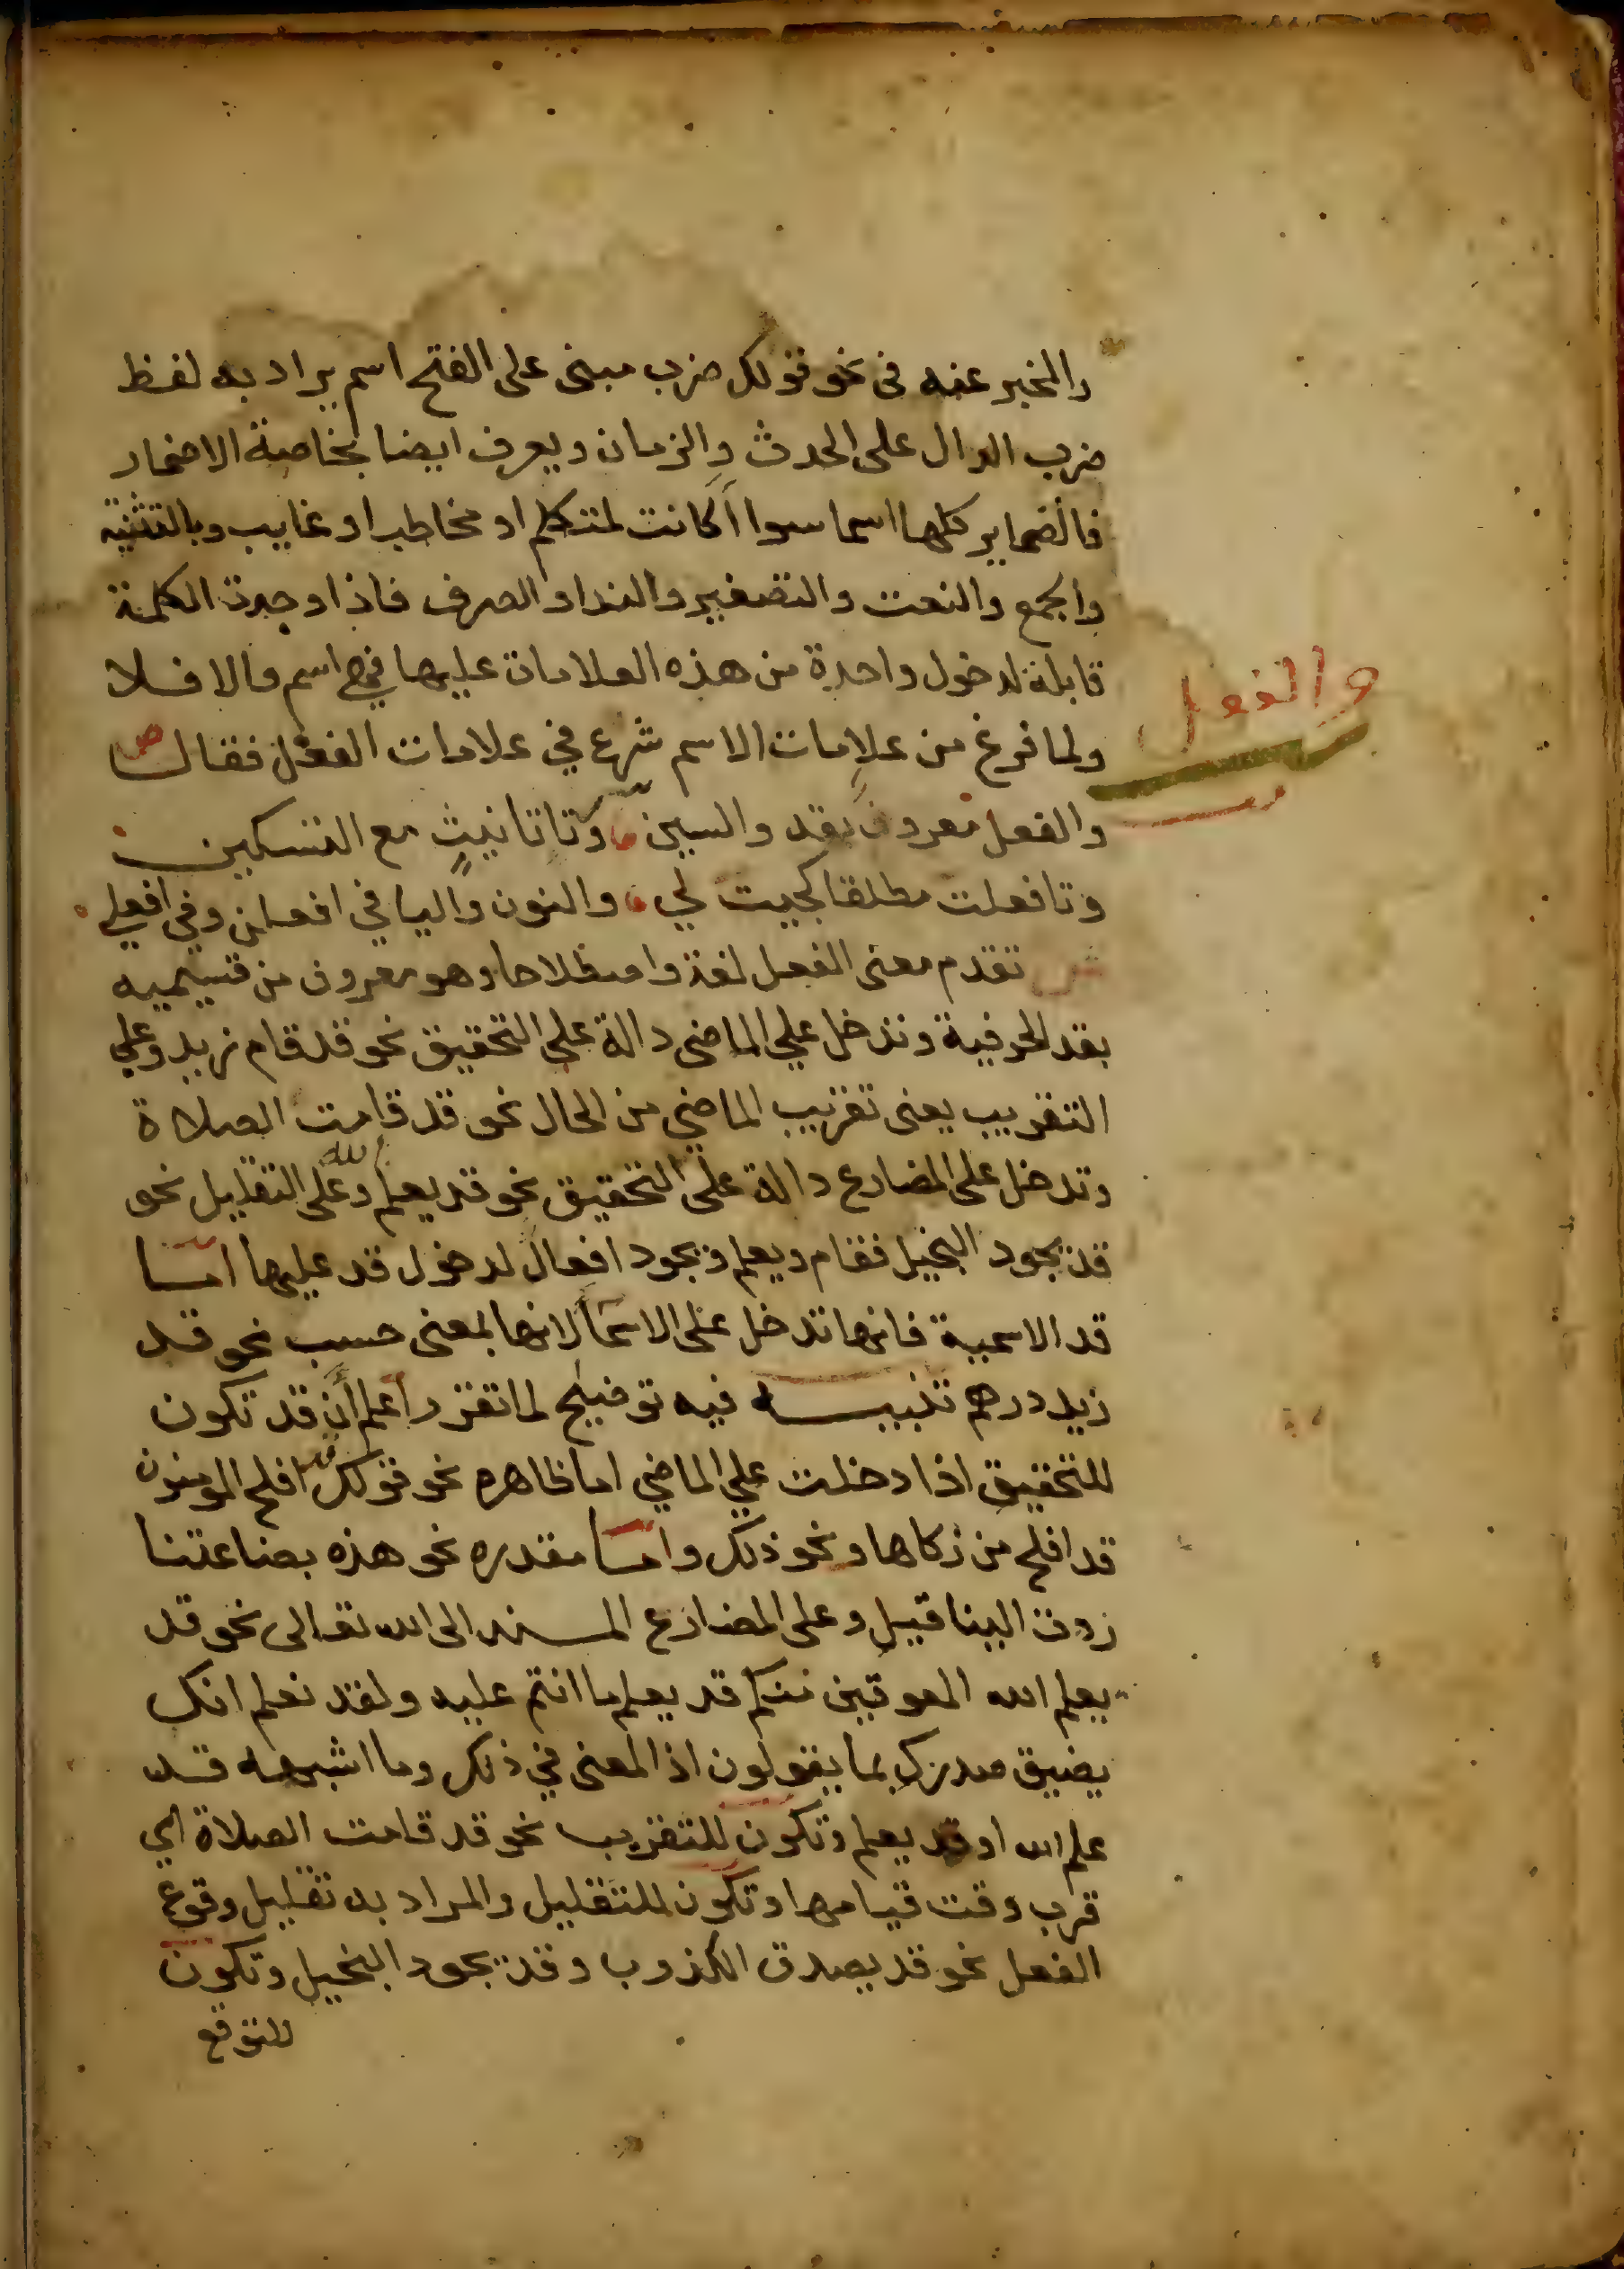 والمخبر عنه فى نحو قولك ضرب مبنى على الفتح اسم يراد به لفظ
ضرب الدال على الحدث والزمان ويعرف ايضا بخاصة الاضمار
فالضماير كلها اسما سوا اكانت لمتكلم او مخاطب او غايب وبالتثنية
والجمع والنعت والتصغير والندا والصرف فاذا وجدت الكلمة
قابلة لدخول واحدة من هذه العلامات عليها فهي اسم والا فلا
والفعل
ولما فرغ من علامات الاسم شرع في علامات الفعل فقال ص
والفعل معروف بقد والسين وتا تانيث مع التسكين
وتا فعلت مطلقا كجيت لي والنون واليا في افعلن وفي افعلي
ش تقدم معنى الفعل لغة واصطلاحا وهو معروف من قسيميه
بقد الحرفية وتدخل علي الماضى دالة على التحقيق نحو قد قام زيد وعلي
التقريب يعنى تقريب الماضي من الحال نحو قد قامت الصلاة
وتدخل على المضارع دالة على التحقيق نحو قد يعلم الله وعلى التقليل نحو
قد يجود البخيل فقام ويعلم ويجود افعال لدخول قد عليها امــا
قد الاسمية فانها تدخل على الاسما لانها بمعنى حسب نحو قد
زيد درهم تنبيــه فيه توضيح لما تقرر اعلم أن قد تكون
للتحقيق اذا دخلت علي الماضي اما ظاهره نحو قولك قد افلح المومنون
قد افلح من زكاها ونحو ذلك وامــا مقدره نحو هذه بضاعتنا
ردت الينا قيل وعلى المضارع المسند الى الله تعالى نحو قد
يعلم الله المعوقين منكم قد يعلم ما انتم عليه ولقد نعلم انك
يضيق صدرك بما يقولون اذ المعنى في ذلك وما اشبهه قد
علم الله او قد يعلم وتكون للتقريب نحو قد قامت الصلاة اي
قرب وقت قيامها وتكون للتقليل والمراد به تقليل وقوع
الفعل نحو قد يصدق الكذوب وقد يجود البخيل وتكون
للتوقع